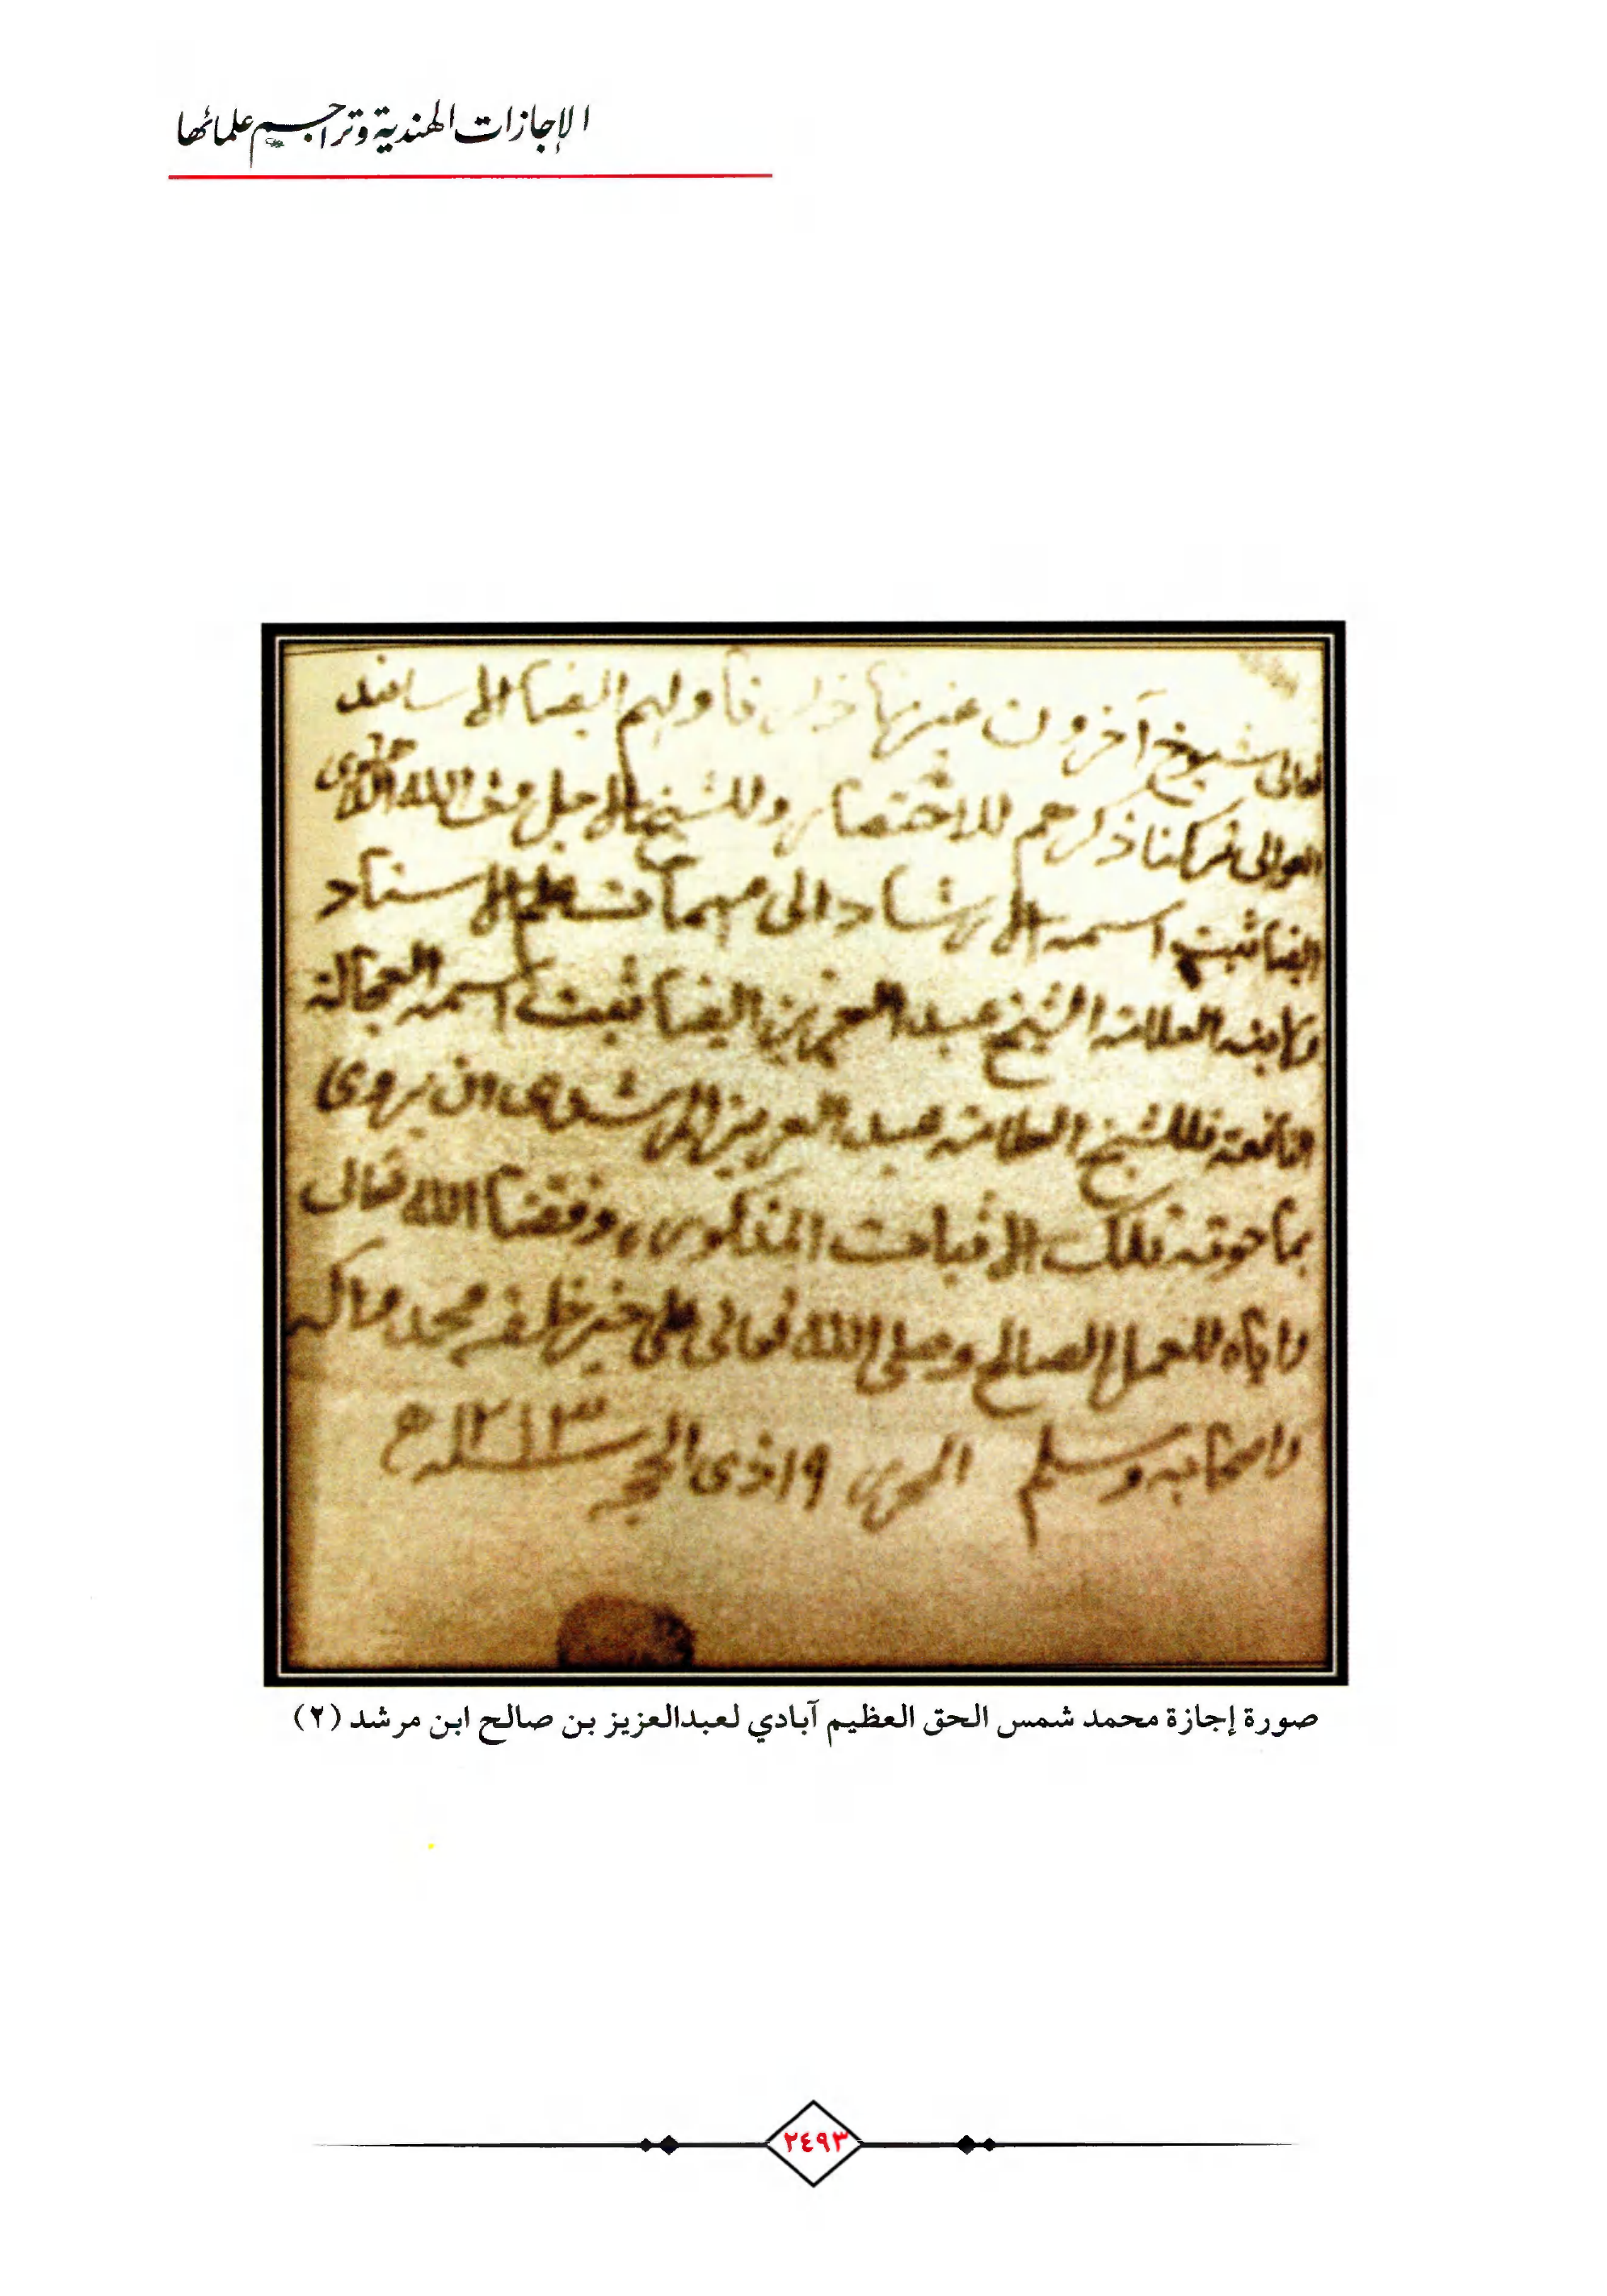 الإجازات الهندية وتراجم علمائها
تعالى شيوخ آخرون غيرها ولهم ايضا الاسانيد
العوالى تركنا ذكرهم للاختصار وللشيخ الاجل ولى الله الدهلوى
ايضا ثبت اسمه الارشاد الى مهمات علم الاسناد
ولابنه العلامة الشيخ عبد العزيز ايضا ثبت اسمه العجالة
النافعة فللشيخ العلامة عبد العزيز المرشدى ان يروى
بما حوته تلك الاثبات المذكورة وفقنا الله تعالى
واياه للعمل الصالح وصلى الله تعالى على خير خلقه محمد واله
واصحابه وسلم ١٩ ذى الحجه سنه ١٣ ھ
صورة إجازة محمد شمس الحق العظيم آبادي لعبدالعزيز بن صالح ابن مرشد (٢)
٢٤٩٣